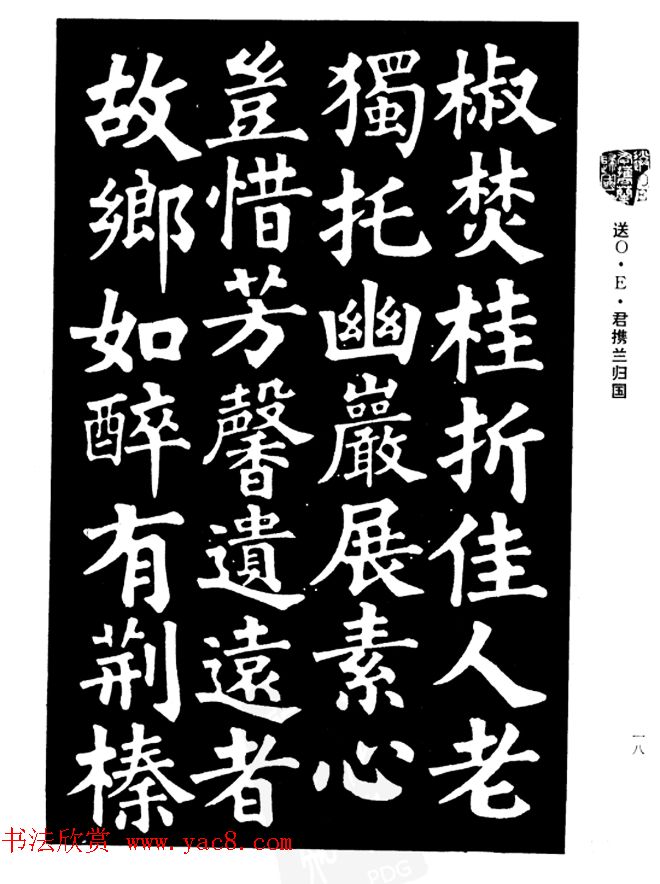 椒焚桂折佳人老
獨托幽巖展素心
豈惜芳馨遺遠者
故鄉如醉有荆榛
送O·E·君携兰归国
一八
书法欣赏 www.yac8.com
PDG